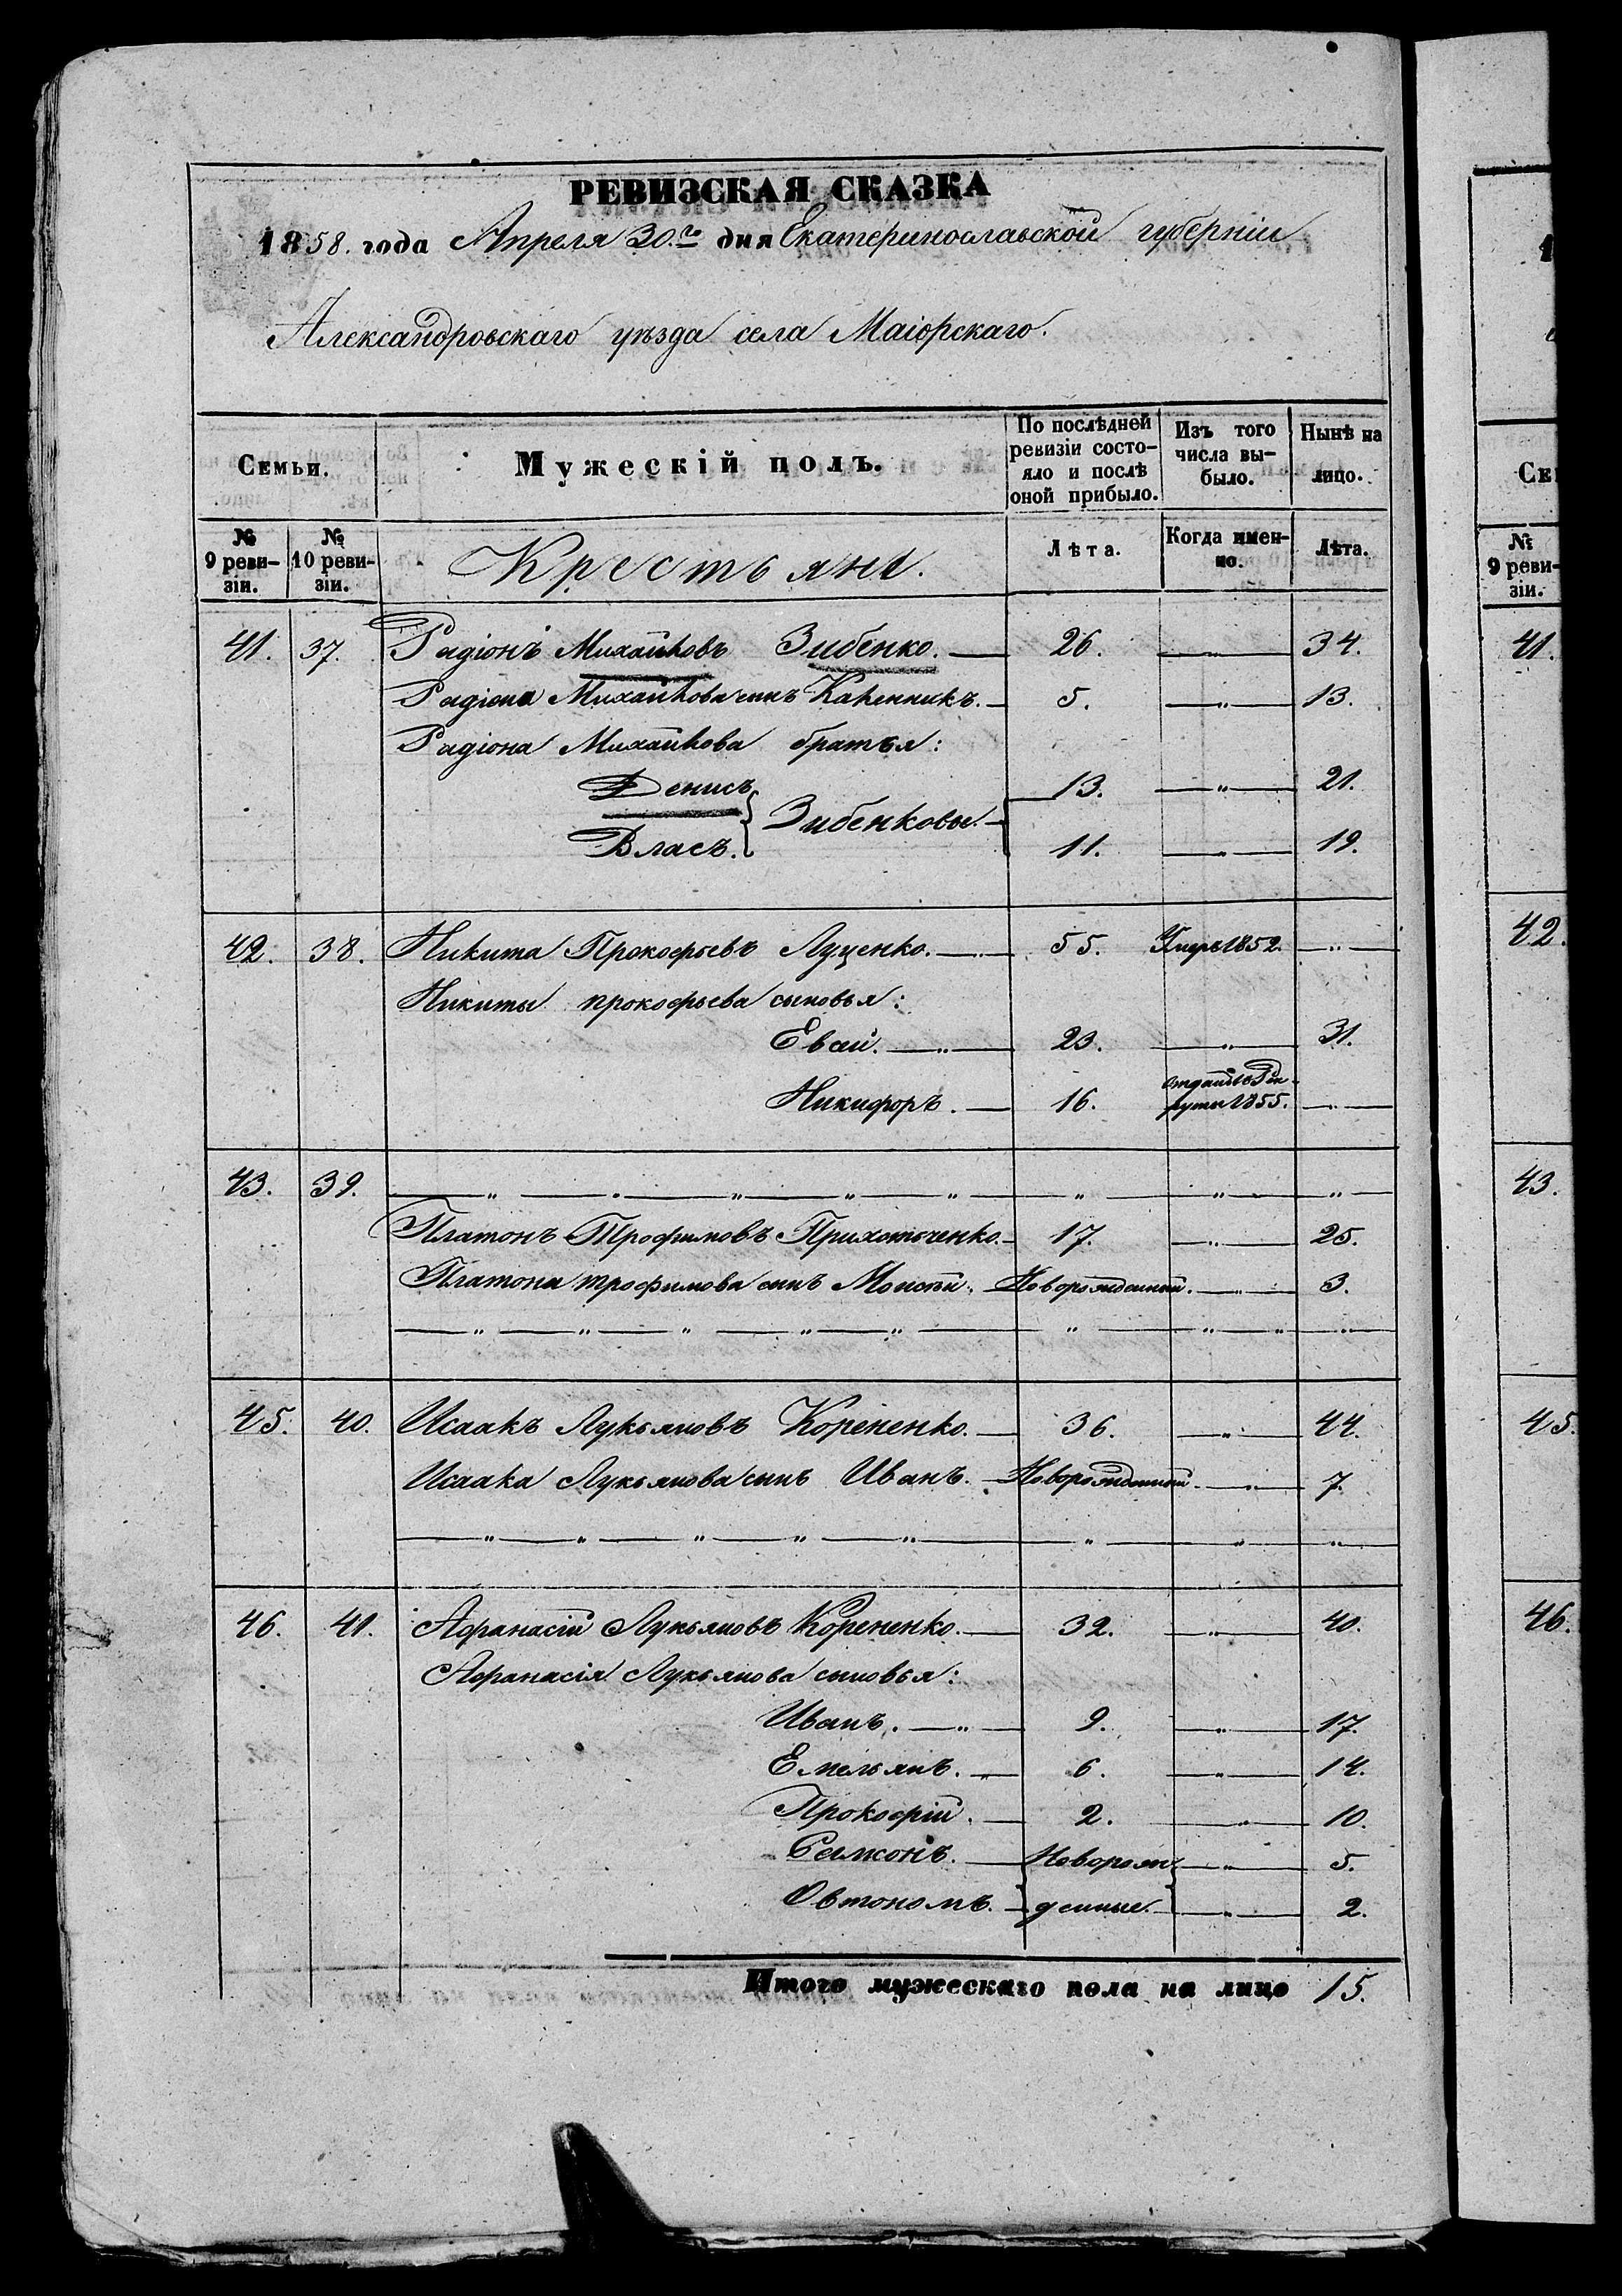 РЕВИЗСКАЯ СКАЗКА
1858. года Апреля 30.го дня Екатеринославской губерніи
Александровскаго уѣзда села Маіорскаго.
Семьи. Мужескій полъ. По послѣдней ревизіи состояло и послѣ оной прибыло. Изъ того числа выбыло. Нынѣ на лицо.
№ 9 ревизіи. № 10 ревизіи. Крестьяне. Лѣта. Когда именно. Лѣта.
41. 37. Радіонъ Михайловъ Зибенко. 26. — " — 34.
Радіона Михайлова сынъ Каленникъ. 5. — " — 13.
Радіона Михайлова братья:
Денисъ 13. — " — 21.
Зибенковы.
Власъ. 11. — " — 19.
42. 38. Никита Прокофьевъ Луценко. 55. Умеръ 1852. — " —
Никиты прокофьева сыновья:
Евсей. — " — 23. — " — 31.
Никифоръ. 16. отданъ въ Рекруты 1855. — " —
43. 39. — " — " — " — " — " — " — " — " —
Платонъ Трофимовъ Прихотьченко. 17. — " — 25.
Платона трофимова сынъ Моисей. Новорожденный. — " — 3.
— " — " — " — " — " — " — " — " — " —
45. 40. Исаакъ Лукьяновъ Корененко. 36. — " — 44.
Исаака Лукьянова сынъ Иванъ. Новорожденный. — " — 7.
— " — " — " — " — " — " — " — " —
46. 41. Афанасій Лукьяновъ Корененко. 32. — " — 40.
Афанасія Лукьянова сыновья:
Иванъ. — " — 9. — " — 17.
Емельянъ. — " — 6. — " — 14.
Прокофій. — 2. — " — 10.
Самсонъ. — Новорож — " — 5.
Овтономъ. — денные. — " — 2.
Итого мужескаго пола на лицо 15.
1
Се
№ 9 ревизіи.
41.
42.
43.
45.
46.